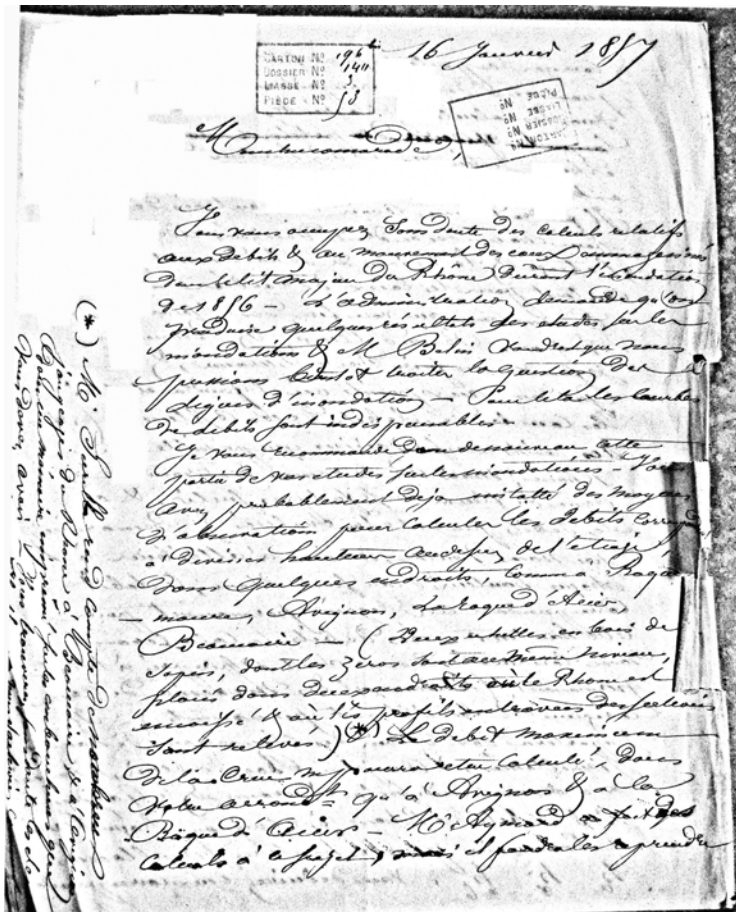 CARTON N° 196 bis
DOSSIER N° 1411
LIASSE N° 3
PIÈCE N° 53
16 Janvier 1857
CARTON N°
DOSSIER N°
LIASSE N°
PIÈCE N°
Mon cher camarade,
Vous vous occupez sans doute des calculs relatifs
aux débits & au mouvement des eaux
dans le lit majeur du Rhône durant l'inondation
de 1856 — L'administration demande qu'on
produise quelques résultats des études sur les
inondations & M. Belin voudrait que nous
puissions bientôt traiter la question des
digues d'inondation — Pour cela les courbes
de débits sont indispensables —
Je vous recommande donc de nouveau cette
partie de vos études sur les inondations — Vous
avez probablement déjà installé des moyens
d'observation pour calculer les débits
à diverses hauteurs au dessus de l'étiage,
dans quelques endroits, comme à Roque
- maure, Avignon, La roque d'Acier,
Beaucaire — (Deux échelles en bois de
sapin, dont les zéros sont au même niveau,
placés dans deux endroits où le Rhône est
encaissé & où les profils en travers des
sont relevés) (*) Le débit maximum
de la Crue m'a paru calculé, dans
votre arrond.t qu'à Avignon & à la
Roque d'Acier — M. Aymard a fait des
calculs à ce sujet, mais il faudra les reprendre
(*) M. Surell rend compte de nombreux
jaugeages du Rhône à Beaucaire, & à l'origine
dans un mémoire imprimé sur les embouchures que
vous devez avoir —